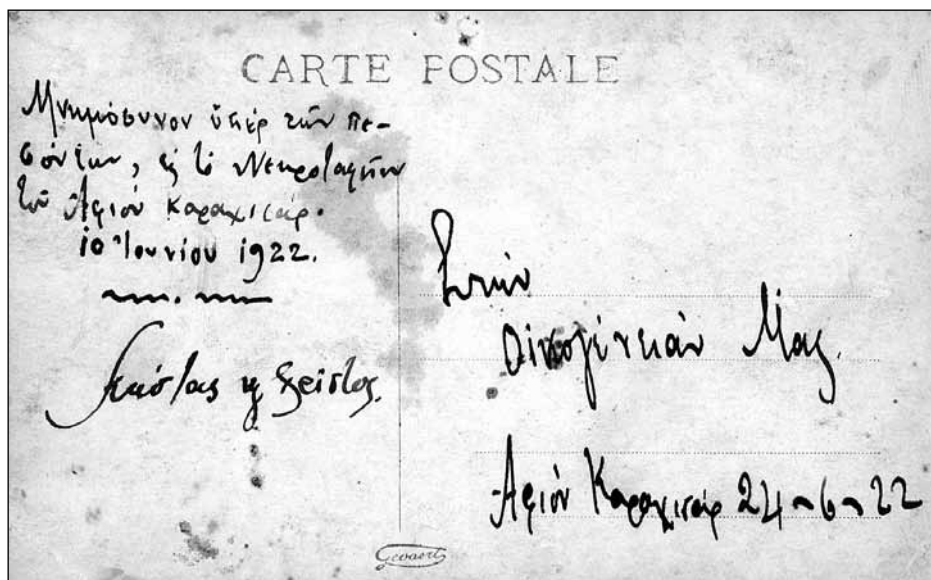 CARTE POSTALE
Μνημόσυνον ὑπὲρ τῶν πε-
σόντων, εἰς τὸ Νεκροταφεῖον
τοῦ Ἀφιὸν Καραχισάρ.
10 Ἰουνίου 1922.
Κώστας κ Χρῖστος.
Στὴν
οἰκογένειάν Μας.
Ἀφιὸν Καραχισάρ 24-6-22
Gevaert